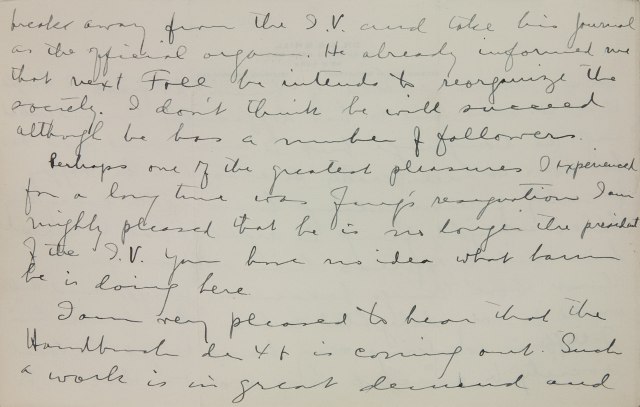 break away from the I.V. and take his Journal
as the official organ. He already informed me
that next Fall he intends to reorganize the
society. I don't think he will succeed
although he has a number of followers.
Perhaps one of the greatest pleasures I experienced
for a long time was Jung's resignation I am
mighty pleased that he is no longer the president
of the I.V. You have no idea what harm
he is doing here
I am very pleased to hear that the
Handbuch der is coming out. Such
a work is in great demand and